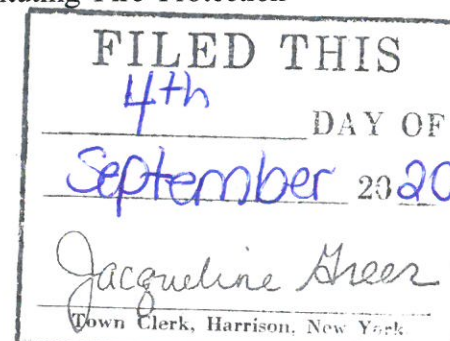 Fire Protection
FILED THIS
4th DAY OF
September 2020
Jacqueline Greer
Town Clerk, Harrison, New York